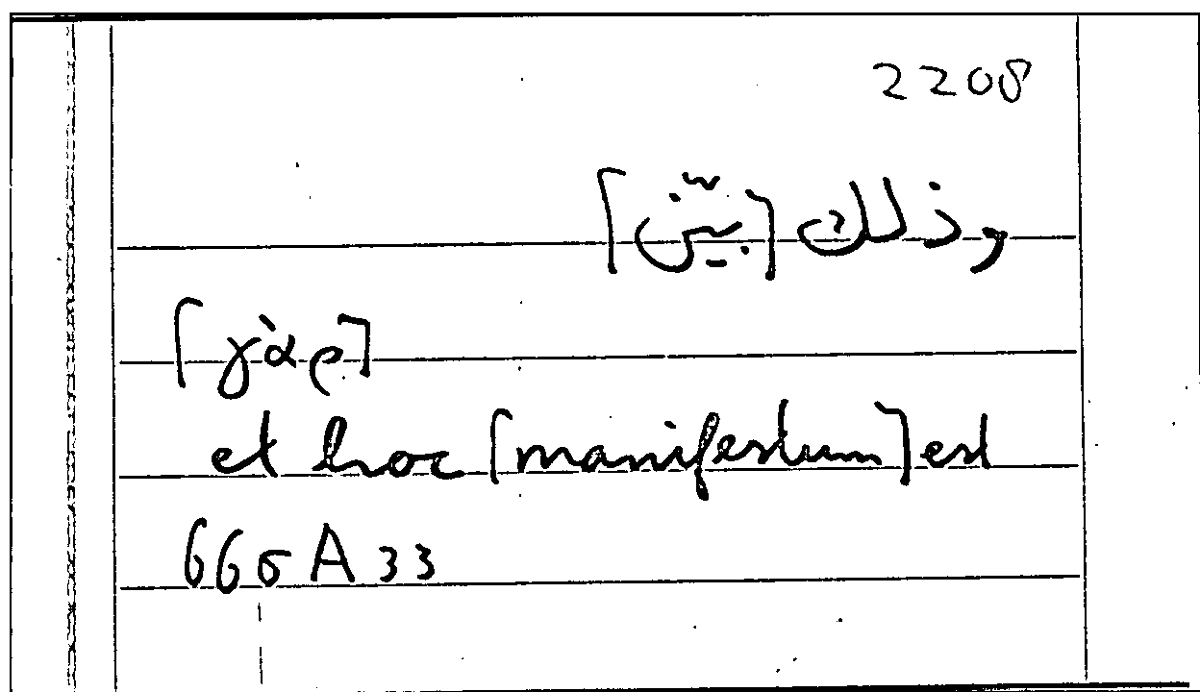 2208
وذلك [بيّن]
[γὰρ]
et hoc [manifestum] est
665 A 33